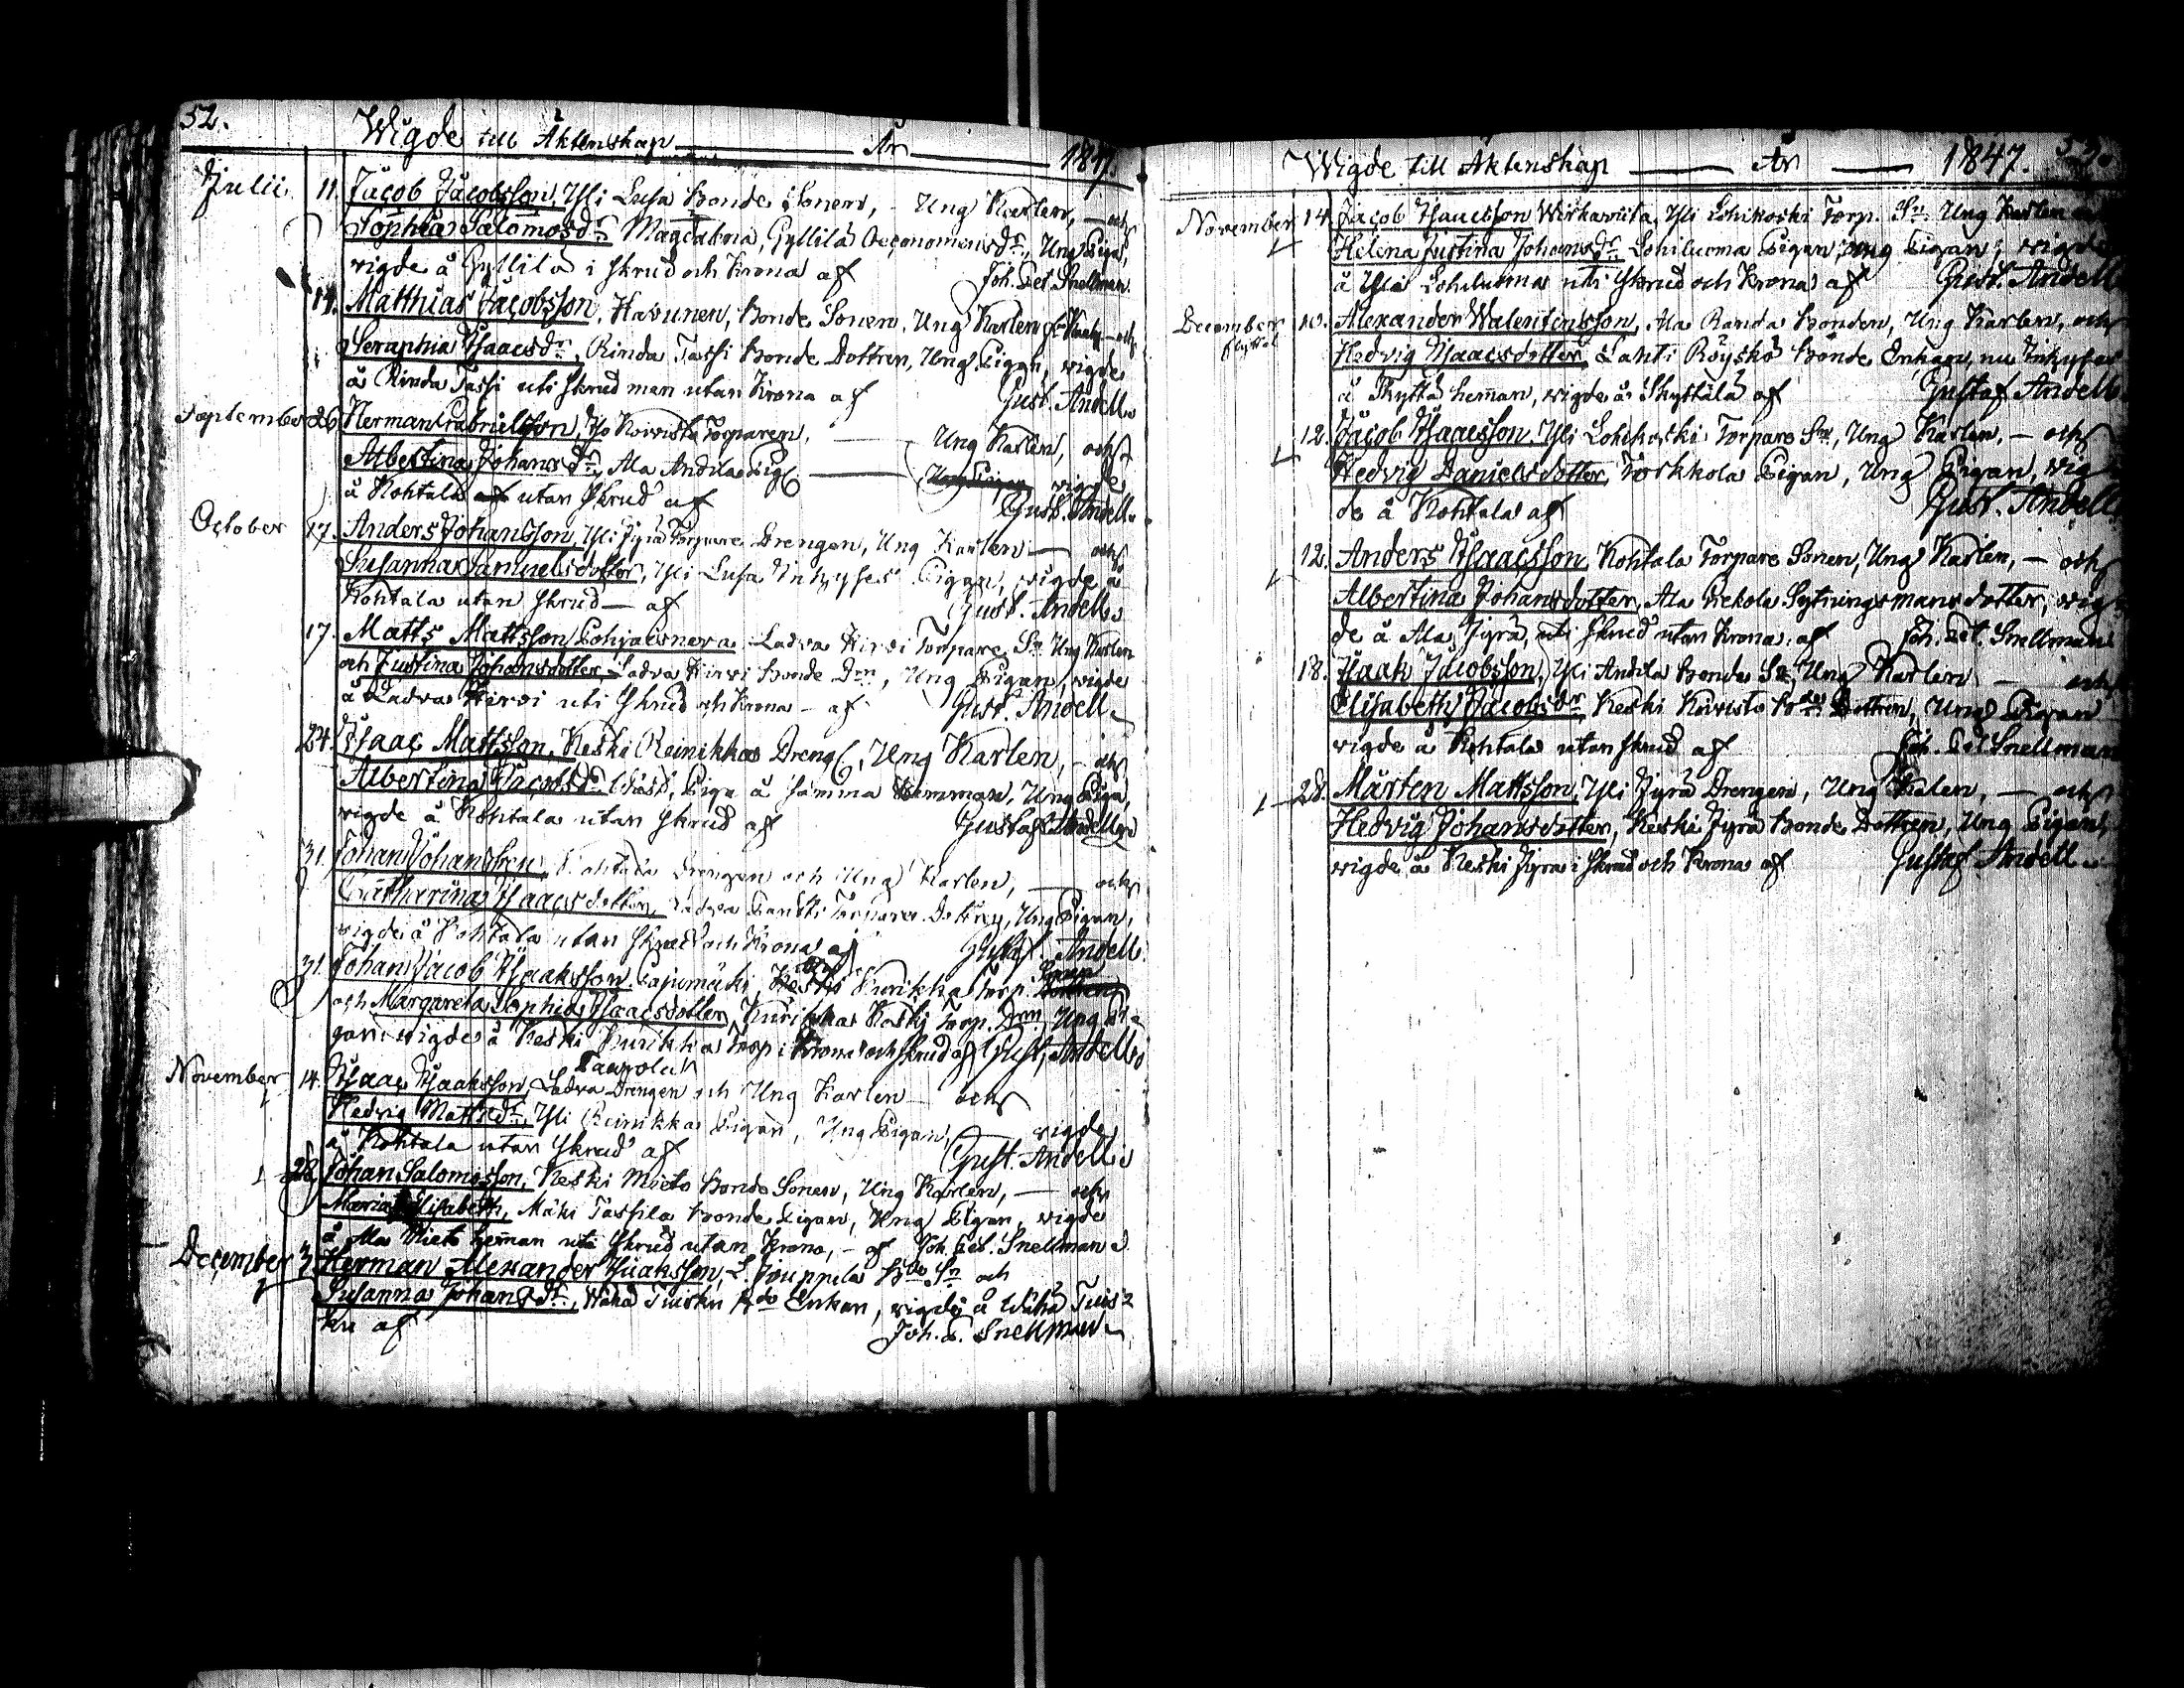 52.
Wigde till Äktenskap År 1847.
Julii 11. Jacob Jacobsson, Yli Lusa Bonde Sonen, Ung Karlen, och
Sophia Salomosdr Magdalena, Gyllilä Oeconomensdr, Ung Pigan,
vigde å Gyllilä i skrud och Krona af Joh. Pet. Snellman.
11. Matthias Jacobsson, Havunen, Bonde Sonen, Ung Karlen och
Seraphia Isaacsdr, Rinda Tassi Bonde Dottren, Ung Pigan, vigde
å Rinda Tassi uti skrud men utan Krona af Gust. Andell.
September 26 Herman Gabrielsson, Koivisto Torparen, Ung Karlen, och
Albertina Johansdr, Ala Andila Pig. Ung Pigan vigde
å Kohtala utan skrud af Gust. Andell.
October 17. Anders Johansson, Yli Jyrä Torpare Drengen, Ung Karlen och
Susanna Samuelsdotter, Yli Lusa Inhyses Pigan, vigde å
Kohtala utan skrud af Gust. Andell.
17. Matts Mattsson Pohjaisneva Ladva Hirvi Torpare Sn Ung Karlen
och Justina Johansdotter Ladva Hirvi Bonde Drn, Ung Pigan, vigde
å Ladva Hirvi uti skrud och Krona af Gust. Andell.
24. Isaac Mattsson, Keski Reinikka Dreng, Ung Karlen, och
Albertina Jacobsdr, Piga å samma Hemman, Ung Piga,
vigde å Kohtala utan skrud af Gustaf Andell
31. Johan Johansson, Kohtala Drengen och Ung Karlen, och
Catharina Isaacsdotter, Ladva Torpare Dottren, Ung Pigan,
vigde å Kohtala utan skrud och Krona af Gustaf Andell
31. Johan Jacob Isaaksson Lajumäki, Keski Kurikka Torp. Sonen
och Margareta Sophia Isaacsdotter, Kurikka Koski Torp. Drn, Ung Pi-
gan, vigde å Keski Kurikka Torp i Krona och skrud af Gust. Andell
Taavola
November 14. Isaac Isaaksson, Ladva Drengen och Ung Karlen och
Hedvig Mattsdr, Yli Reinikka Pigan, Ung Pigan, vigde
å Kohtala utan skrud af Gust. Andell
28. Johan Salomosson, Keski Mieto Bonde Sonen, Ung Karlen, och
Maria Elisabeth, Mäki Tassila Bonde Pigan, Ung Pigan, vigde
å Ala Mieto heman uti skrud utan Krona, af Joh. Pet. Snellman
December 3. Herman Alexander Isaksson, L. Jouppila Bde Sn och
Susanna Johansdr, Wähä Tuisku Bde Enkan, vigde å Wähä Tuis-
ku af Joh. P. Snellman
Wigde till Äktenskap År 1847.
November 14. Jacob Isaacsson Wiskavuta, Yli Lohikoski Torp. Sn. Ung Karlen
Helena Justina Johansdr Lohiluoma Pigan, Ung Pigan, vigde
å Yli Lohiluoma uti skrud och Krona af Gust. Andell
December 10. Alexander Walentinsson, Ala Randa Bonden, Ung Karlen, och
flyttat
Hedvig Isaacsdotter, Lahti Röyskö Bonde Enkan, nu Inhyses
å Skyttä heman, vigde å Skyttälä af Gustaf Andell
12. Jacob Isaacsson Yli Lohikoski Torpare Sn, Ung Karlen, och
Hedvig Danielsdotter, Torkkola Pigan, Ung Pigan, vig-
de å Kohtala af Gust. Andell
12. Anders Isaacsson Kohtala Torpare Sonen, Ung Karlen, och
Albertina Johansdotter, Ala Pickola Sytningsmans dotter, vig-
de å Ala Jyrä, uti skrud utan Krona, af Joh. Pet. Snellman
18. Isaak Jacobsson, Yli Andila Bonde Sn, Ung Karlen och
Elisabeth Jacobsdr Keski Koivisto Bde Dottren, Ung Pigan
vigde å Kohtala utan skrud af Joh. Pet Snellman
28. Mårten Mattsson, Yli Jyrä Drengen, Ung Kalen, och
Hedvig Johansdotter, Keski Jyrä Bonde Dottren, Ung Pigan,
vigde å Keski Jyrä i skrud och Krona af Gustaf Andell